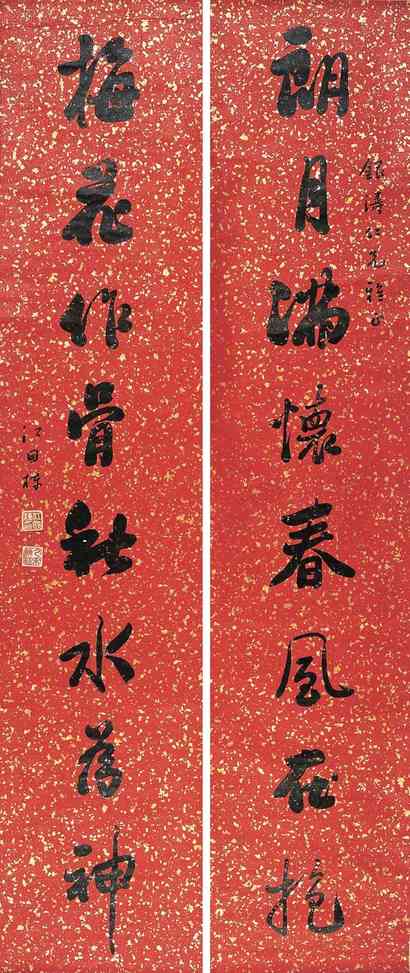 朗月滿懷春風在抱
銀濤仁兄雅正
梅花作骨秋水為神
江國棟